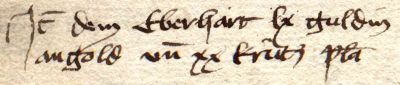 Jt̄ dem Eberhart lx guldin
an gold vn̄ xx krutz pla